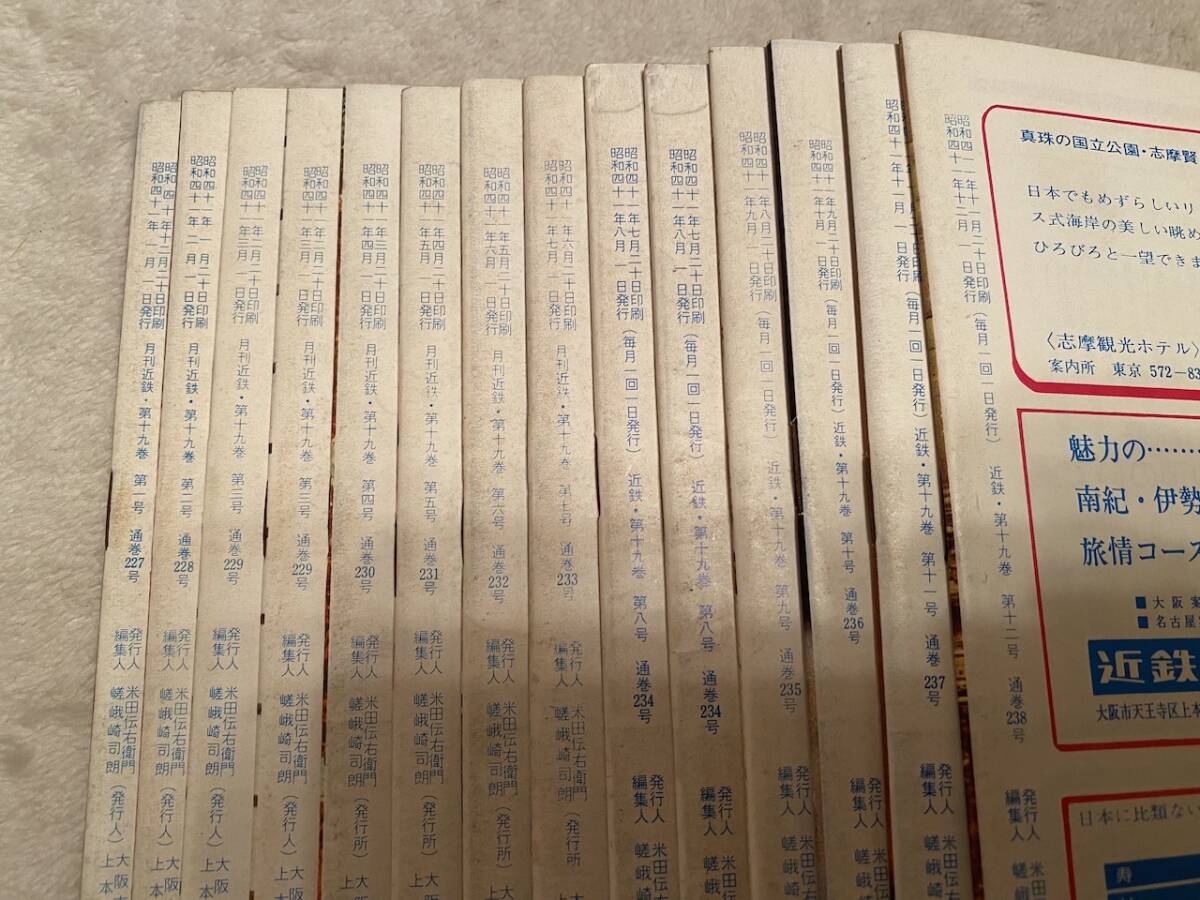 昭和四十年十二月二十日印刷
昭和四十一年 一月 一日発行
月刊近鉄・第十九巻 第一号 通巻227号
発行人
編集人
嵯峨崎司朗
(発行人)
昭和四十一年 一月二十日印刷
昭和四十一年 二月 一日発行
月刊近鉄・第十九巻 第二号 通巻228号
発行人
編集人
米田伝右衛門
嵯峨崎司朗
(発行人)
大阪
上
昭和四十一年 三月 一日発行
月刊近鉄・第十九巻 第三号 通巻229号
発行人
編集人
米田伝右衛門
嵯峨崎司朗
(発行人)
大阪
上本
昭和四十一年二月二十日印刷
昭和四十一年三月 一日発行
月刊近鉄・第十九巻 第三号 通巻229号
発行人
編集人
米田伝右衛門
嵯峨崎司朗
(発行人)
昭和四十一年三月二十日印刷
昭和四十一年四月 一日発行
月刊近鉄・第十九巻 第四号 通巻230号
発行人
編集人
米田伝右衛門
嵯峨崎司朗
(発行所)
上
昭和四十一年四月二十日印刷
昭和四十一年五月 一日発行
月刊近鉄・第十九巻 第五号 通巻231号
発行人
編集人
米田伝右衛門
嵯峨崎司朗
(発行所)
大
上
昭和四十一年五月二十日印刷
昭和四十一年六月 一日発行
月刊近鉄・第十九巻 第六号 通巻232号
発行人
編集人
米田伝右衛門
嵯峨崎司朗
(発行所)
大
上
昭和四十一年六月二十日印刷
昭和四十一年七月 一日発行
月刊近鉄・第十九巻 第七号 通巻233号
発行人
編集人
米田伝右衛門
嵯峨崎司朗
(発行所
昭和四十一年七月二十日印刷
昭和四十一年八月 一日発行
(毎月一回一日発行) 近鉄・第十九巻 第八号 通巻234号
発行人
編集人
米田伝
嵯峨崎
昭和四十一年七月二十日印刷
昭和四十一年八月 一日発行
(毎月一回一日発行) 近鉄・第十九巻 第八号 通巻234号
発行人
編集人
米
嵯峨
昭和四十一年八月二十日印刷
昭和四十一年九月 一日発行
(毎月一回一日発行) 近鉄・第十九巻 第九号 通巻235号
発行人
編集人
嵯峨
昭和四十一年九月二十日印刷
(毎月一回一日発行) 近鉄・第十九巻 第十号 通巻236号
発行人
編集人
米
嵯峨
昭和四十一年十一月 一日発行
(毎月一回一日発行) 近鉄・第十九巻 第十一号 通巻237号
発行人
編集人
米田
嵯峨
昭和四十一年十一月二十日印刷
昭和四十一年十二月 一日発行
(毎月一回一日発行) 近鉄・第十九巻 第十二号 通巻238号
発行人
編集人
米田
嵯峨
真珠の国立公園・志摩賢
日本でもめずらしいリ
ス式海岸の美しい眺め
ひろびろと一望できま
〈志摩観光ホテル〉
案内所 東京 572-83
魅力の……
南紀・伊勢
旅情コース
■大阪案
■名古屋
近鉄
大阪市天王寺区上本
日本に比類ない
寿